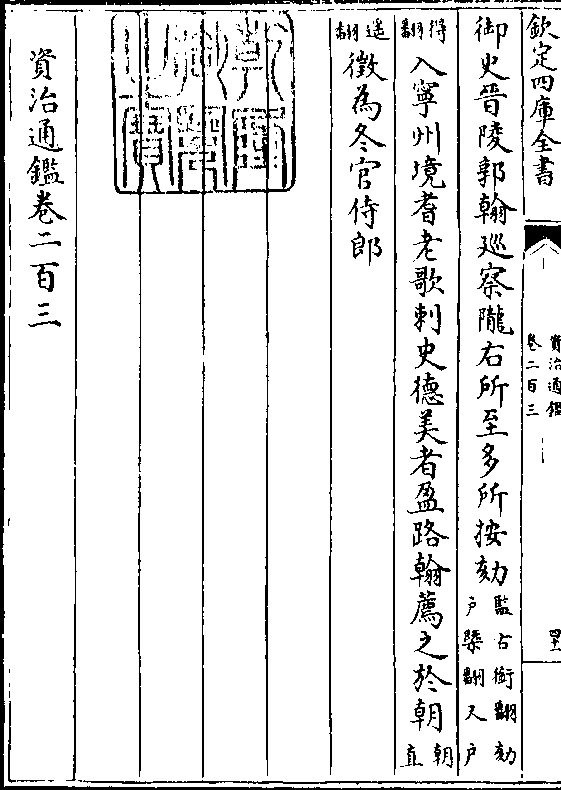 欽定四庫全書
資治通鑑
卷二百三
四十一
御史晉陵郭翰廵察隴右所至多所按劾監古銜翻劾户槩翻又户
得翻入寧州境耆老歌刺史德美者盈路翰薦之於朝朝直
遥翻徵為冬官侍郎
乾隆御覽之寶
資治通鑑卷二百三